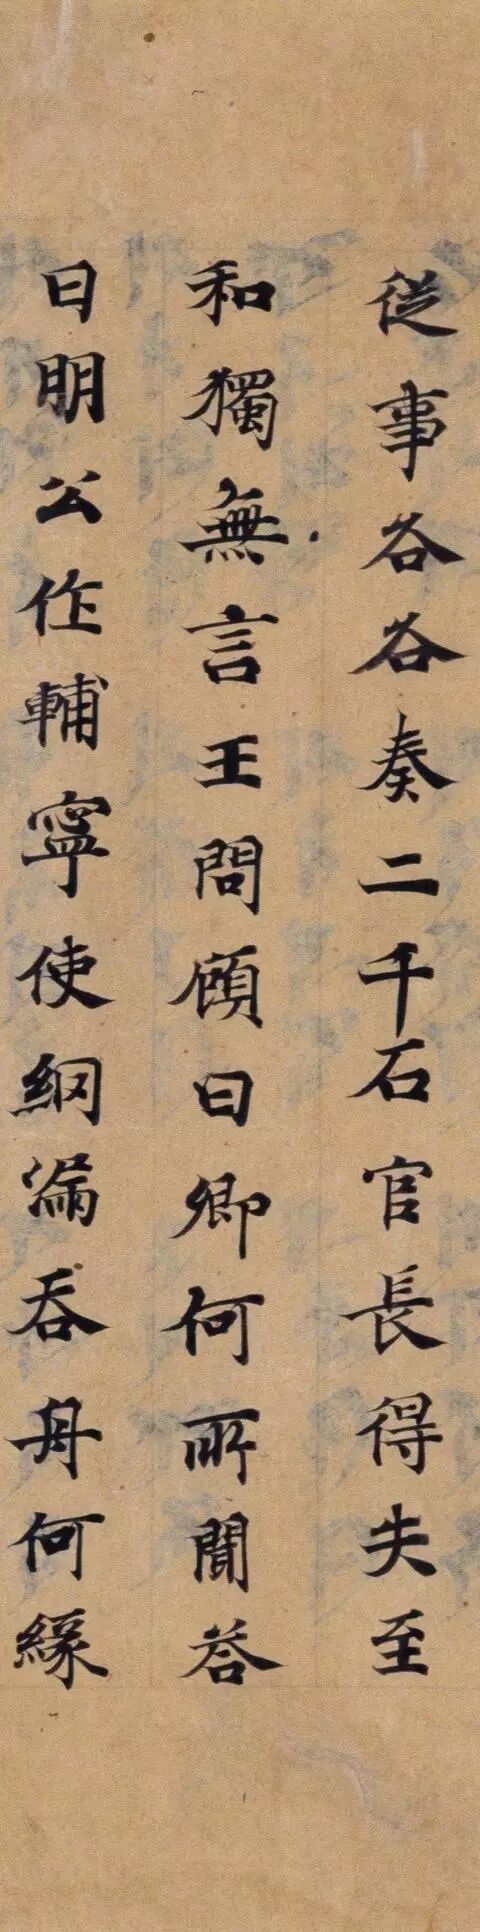 從事各各奏二千石官長得失至
和獨無言王問顧曰卿何所聞荅
曰明公作輔寧使網漏吞舟何緣